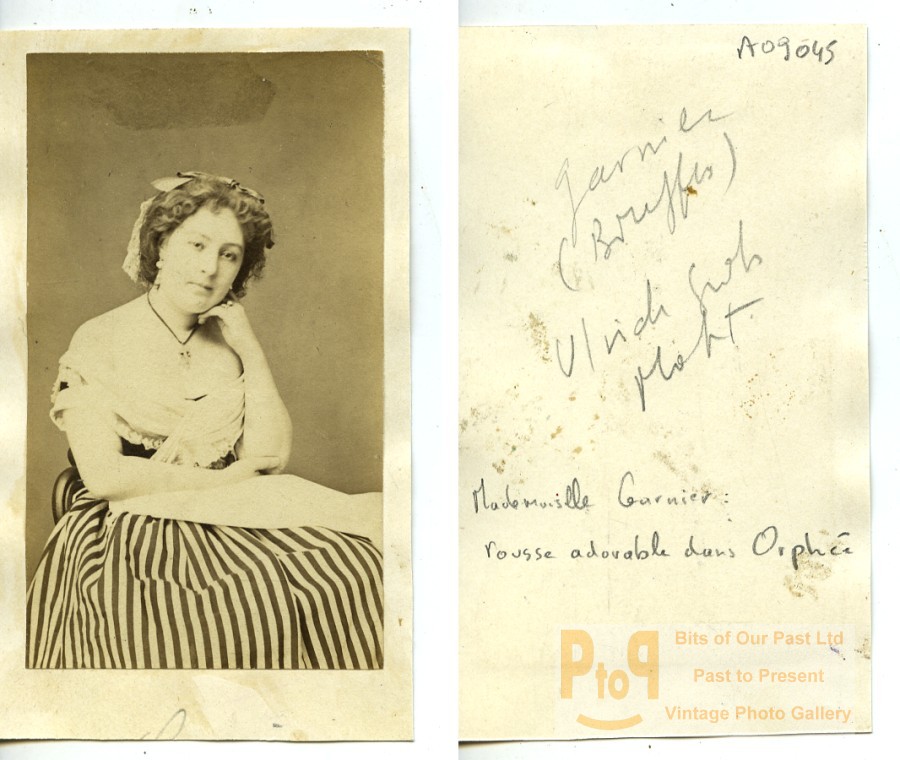 A09045
Garnier
(Bouffes)
Ulrich Grob
phot.
Mademoiselle Garnier :
rousse adorable dans Orphée
PtoP
Bits of Our Past Ltd
Past to Present
Vintage Photo Gallery